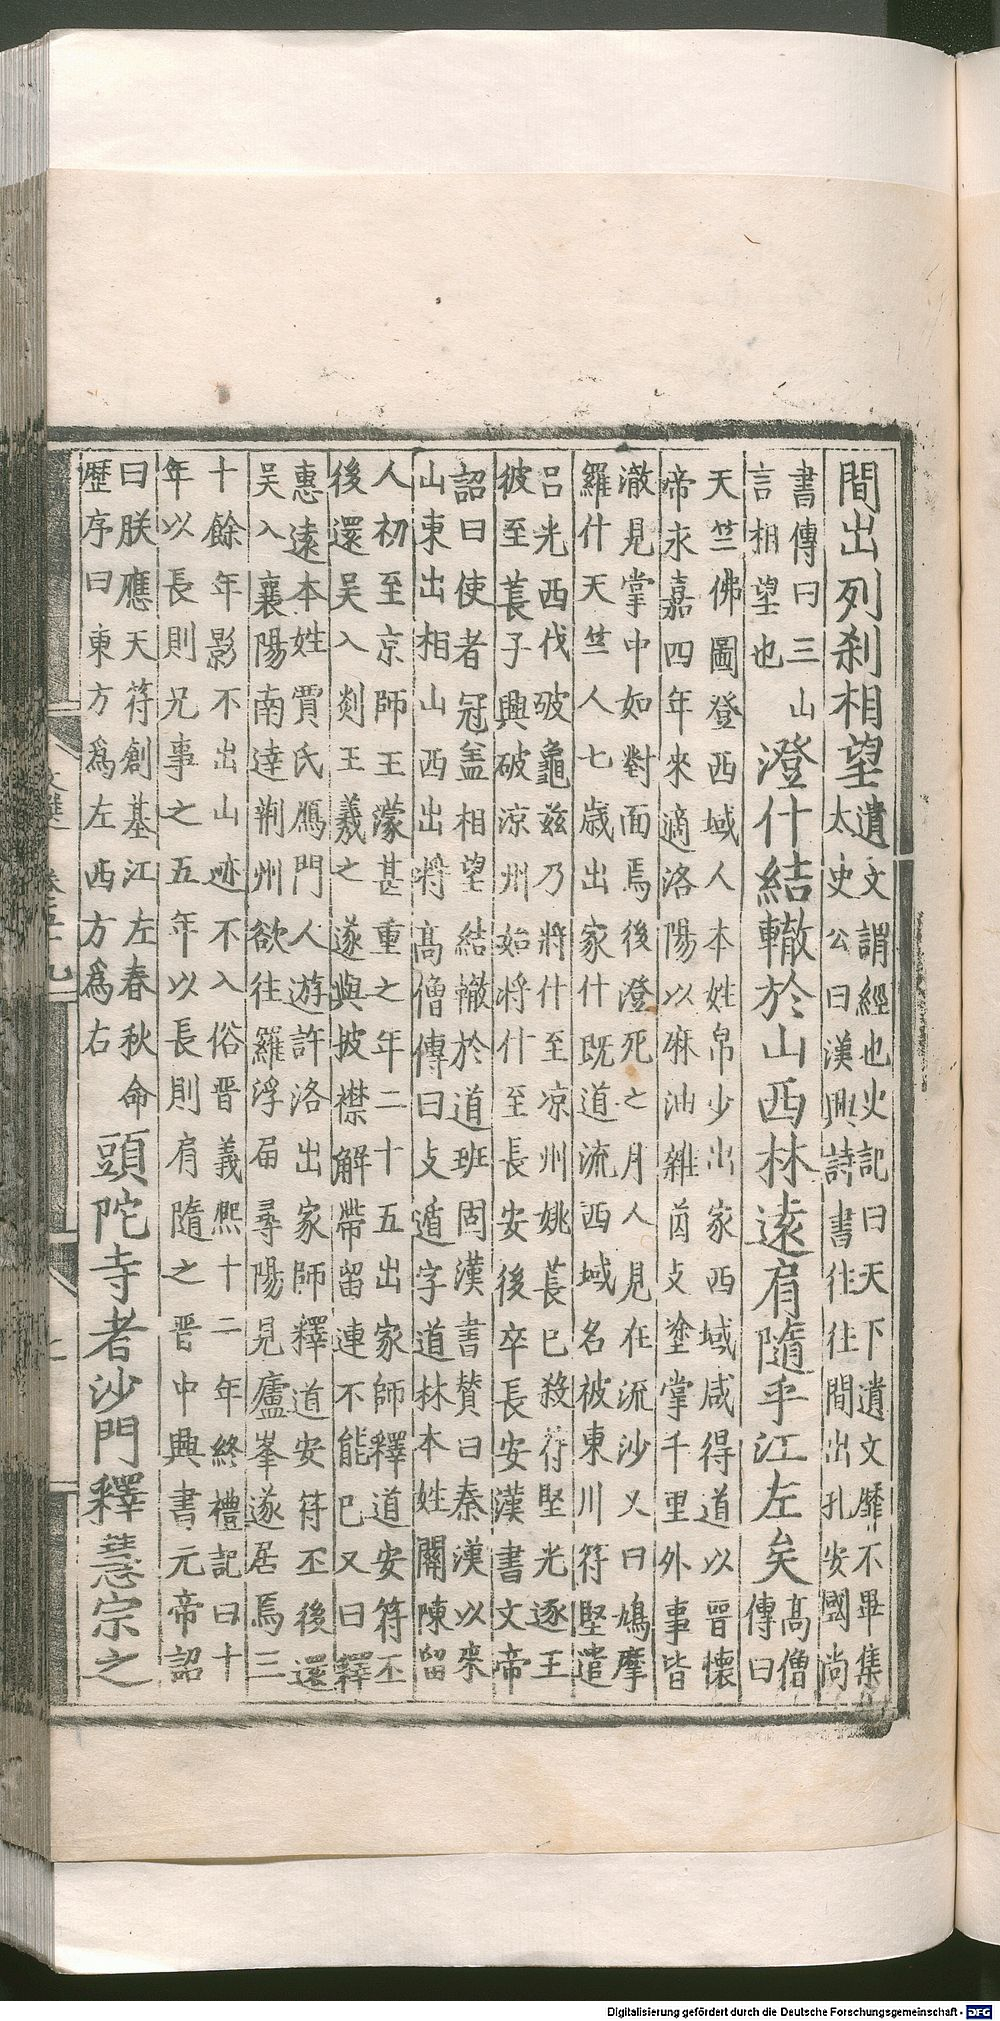 間出列刹相望遺文謂經也史記曰天下遺文靡不畢集
太史公曰漢興詩書往往間出孔安國尚
書傳曰三山
言相望也
澄什結轍於山西林遠肩隨乎江左矣高僧
傳曰
天竺佛圖登西域人本姓帛少出家西域咸得道以晉懷
帝永嘉四年來適洛陽以麻油雜茵攴塗掌千里外事皆
澈見掌中如對面焉後澄死之月人見在流沙又曰鳩摩
羅什天竺人七歲出家什既道流西域名被東川符堅遣
呂光西伐破龜兹乃將什至凉州姚萇已殺符堅光逐王
彼至萇子興破凉州始將什至長安後卒長安漢書文帝
詔曰使者冠盖相望結轍於道班固漢書贊曰秦漢以來
山東出相山西出將高僧傳曰攴遁字道林本姓關陳留
人初至京師王濛甚重之年二十五出家師釋道安符丕
後還吴入剡王羲之遂與披襟解帶留連不能已又曰釋
惠遠本姓賈氏鴈門人遊許洛出家師釋道安苻丕後還
吴入襄陽南達荆州欲往羅浮届尋陽見廬峯遂居焉三
十餘年影不出山迹不入俗晉義熙十二年終禮記曰十
年以長則兄事之五年以長則肩隨之晋中興書元帝詔
曰朕應天符創基江左春秋命
歷序曰東方爲左西方爲右
頭陀寺者沙門釋慧宗之
Digitalisierung gefördert durch die Deutsche Forschungsgemeinschaft - DFG